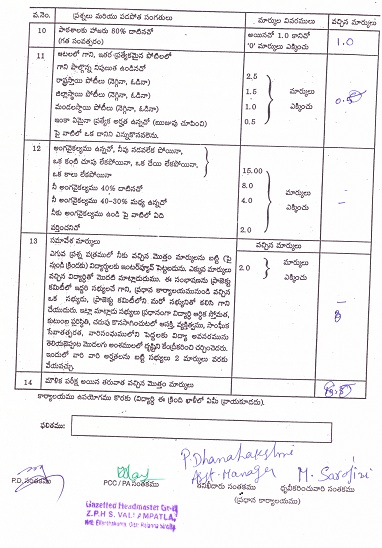 వ.నెం. ప్రశ్నలు మరియు పదవోత సంగతులు మార్కుల వివరములు వచ్చిన మార్కులు
10 పాఠశాలకు హాజరు 80% దాటినచో (గత సంవత్సరం) అయినచో 1.0 కానిచో '0' మార్కులు ఎక్కించు 1.0
11 ఆటలలో గాని, ఇతర ప్రత్యేకమైన పోటీలలో
గాని పాల్గొన్న నిపుణుత ఉండినచో
రాష్ట్రస్థాయి పోటీలు (నెగ్గినా, ఓడినా) 2.5
జిల్లాస్థాయి పోటీలు (నెగ్గినా, ఓడినా) 1.5 మార్కులు 0.5
మండలస్థాయి పోటీలు (నెగ్గినా, ఓడినా) 1.0 ఎక్కించు
ఇంకా ఏమైనా ప్రత్యేక అర్హత ఉన్నచో (ఋజువు చూపించి) 0.5
పై వాటిలో ఒక దానిని ఎన్నుకొనవలెను.
12 అంగవైకల్యము ఉన్నచో, నీవు నడవలేక పోయినా,
ఒక కంటి చూపు లేకపోయినా, ఒక చేయి లేకపోయినా
ఒక కాలు లేకపోయినా 15.00
నీ అంగవైకల్యము 40% దాటినచో 8.0 మార్కులు
నీ అంగవైకల్యము 40-30% మధ్య ఉన్నచో 4.0 ఎక్కించు
నీకు అంగవైకల్యము ఉండి పై వాటిలో ఏది
వర్తించనిచో 2.0
13 సమావేశ మార్కులు వచ్చిన మార్కులు
ఎగువ ప్రశ్న పత్రములో నీకు వచ్చిన మొత్తం మార్కులను బట్టి (పై
స్థుండి క్రిందకు) విద్యార్థులకు ఇంటర్వ్యూస్ పెట్టబడును. ఎక్కువ మార్కులు 2.0 మార్కులు
వచ్చిన విద్యార్థితో మొదటి మాట్లాడుదురు. ఈ సంభాషణను ప్రాజెక్టు ఎక్కించు
కమిటీలో ఇద్దరి సభ్యులచే గాని, ప్రధాన కార్యాలయమునుండి వచ్చిన
ఒక సభ్యుడు, ప్రాజెక్టు కమిటీలోని మరో సభ్యునితో కలిసి గాని
చేయుదురు. ఇట్లా మాట్లాడు సభ్యులు ప్రధానంగా విద్యార్థి ఆర్థిక స్తోమత,
కుటుంబ పరిస్థితి, చదువు కొనసాగించుటలో ఆసక్తి, వ్యక్తిత్వము, సాంఘిక
ఇందులో వారి వారి అర్హతలను బట్టి సభ్యులు 2 మార్కుల వరకు
వేయవచ్చు.
14 మౌఖిక పరీక్ష అయిన తరువాత వచ్చిన మొత్తం మార్కులు
కార్యాలయము ఉపయోగము కొరకు (విద్యార్థి ఈ క్రింది ఖాళీలో ఏమీ వ్రాయకూడదు).
ఫలితము:
P. Dhanalakshmi
Asst-Manager M. Sarojini
P.D. సంతకము PCC / PA సంతకము తనిఖీదారు సంతకము ధృవీకరించువారి సంతకము
(ప్రధాన కార్యాలయము)
Gazetted Headmaster Gr-II
Z.P.H.S.